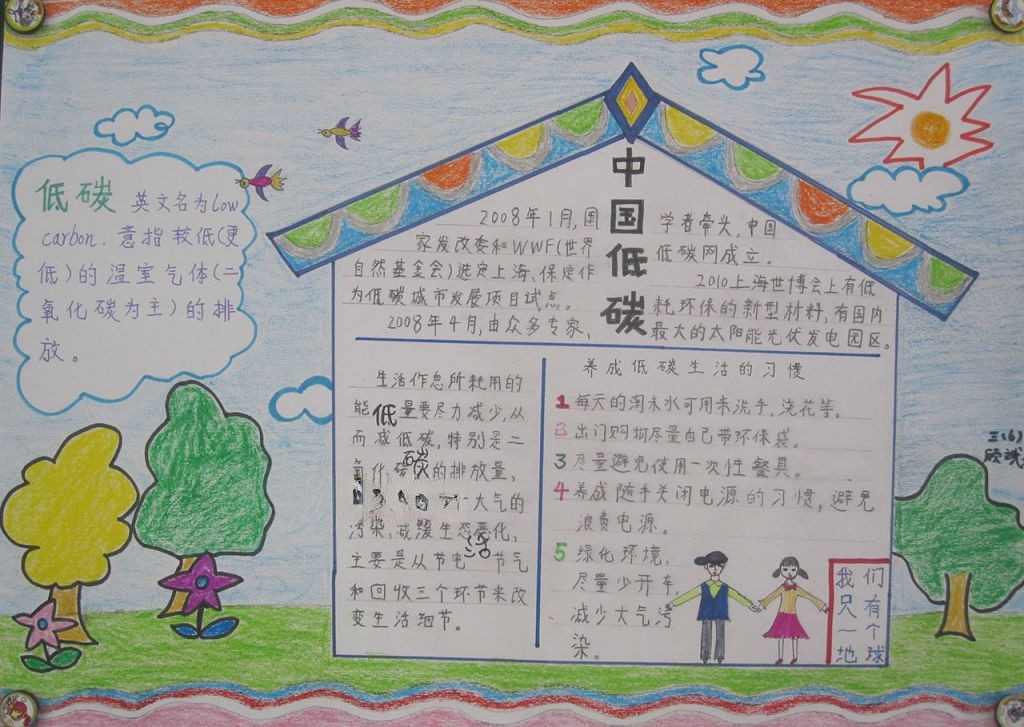 低碳 英文名为low
carbon.意指较低(更
低)的温室气体(二
氧化碳为主)的排
放。
中国低碳
2008年1月,国
家发改委和WWF(世界
自然基金会)选定上海、保定作
为低碳城市发展项目试点。
2008年4月,由众多专家、
学者牵头,中国
低碳网成立。
2010上海世博会上有低
耗环保的新型材料,有国内
最大的太阳能光伏发电园区。
生活作息所耗用的
能量要尽力减少,从
而减低碳,特别是二
氧化碳的排放量,
大气的
污染,减缓生态恶化,
主要是从节电 节气
和回收三个环节来改
变生活细节。
低
碳
活
养成低碳生活的习惯
1 每天的淘米水可用来洗手、浇花等。
2 出门购物尽量自己带环保袋。
3 尽量避免使用一次性餐具。
4 养成随手关闭电源的习惯,避免
浪费电源。
5 绿化环境,
尽量少开车,
减少大气污
染。
我们
只有
一个
地球
三(6)